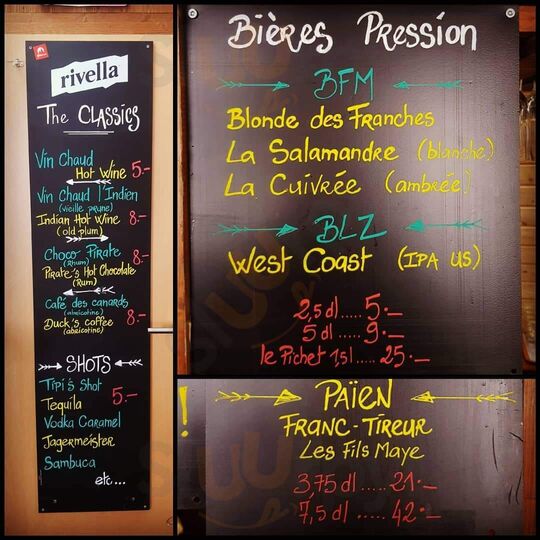 rivella
The CLASSICS
Vin Chaud
Hot Wine 5.-
Vin Chaud l'Indien
(vieille prune)
Indian Hot Wine 8.-
(old plum)
Choco Pirate
(Rhum) 8.-
Pirate's Hot Chocolate
(Rum)
Café des canards
(abricotine)
Duck's coffee 8.-
(abricotine)
SHOTS
Tipi's Shot
Tequila 5.-
Vodka Caramel
Jagermeister
Sambuca
etc...
Bières Pression
BFM
Blonde des Franches
La Salamandre (blanche)
La Cuivrée (ambrée)
BLZ
West Coast (IPA US)
2,5 dl ..... 5.-
5 dl ..... 9.-
le Pichet 1,5 l ..... 25.-
! PAÏEN
FRANC-TIREUR
Les Fils Maye
3,75 dl ..... 21.-
7,5 dl ..... 42.-